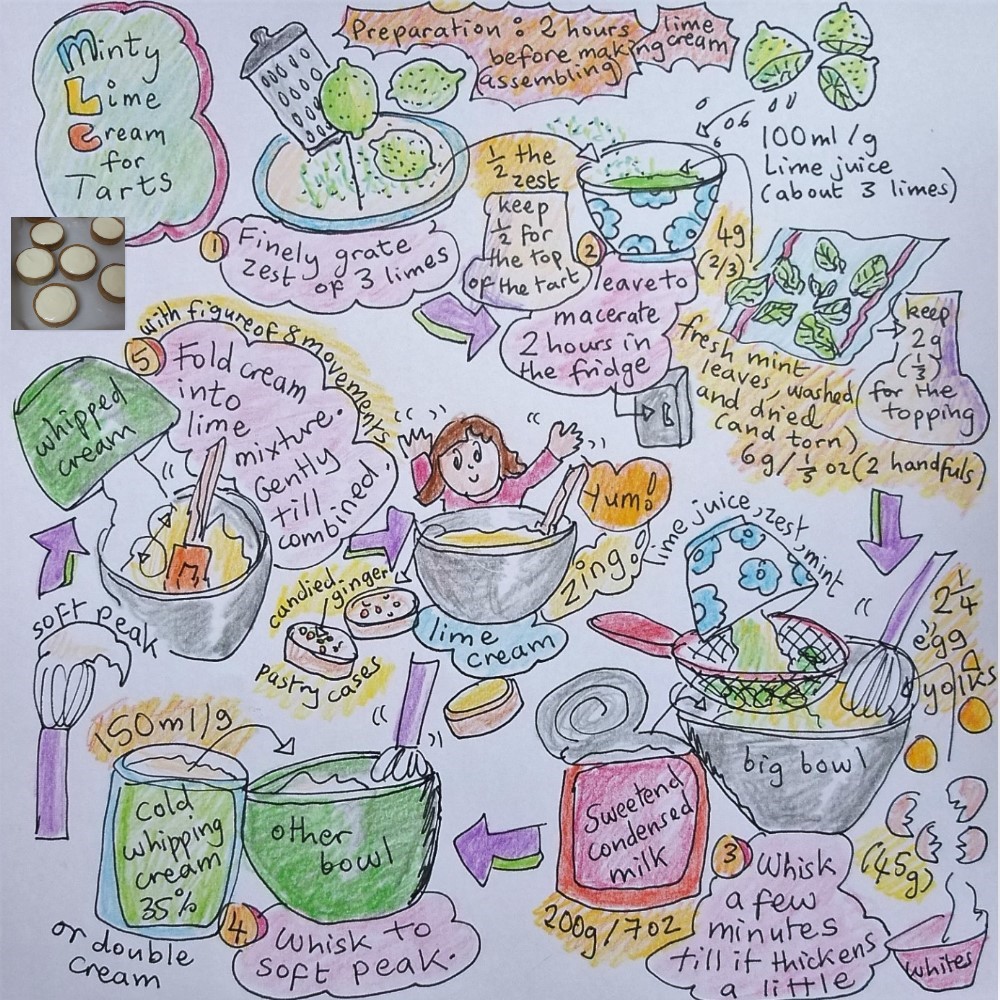 Minty
Lime
Cream
for
Tarts
Preparation : 2 hours
before making
assembling
lime
cream
100ml/g
Lime juice
(about 3 limes)
1/2 the
zest
keep
1/2 for
the top
of the tart
1 Finely grate
zest of 3 limes
2 leave to
macerate
2 hours in
the fridge
4g
(2/3)
fresh mint
leaves, washed
and dried
(and torn)
6g/ 1/5 oz (2 handfuls)
keep
2g
(1/3)
for the
topping
lime juice, zest, mint
2 1/4
egg
yolks
(45g)
whites
big bowl
3 Whisk
a few
minutes
till it thickens
a little
Sweetend
condensed
milk
200g/7oz
150ml/g
cold
whipping
cream
35%
or double
cream
other
bowl
4. Whisk to
soft peak.
soft peak
whipped
cream
with figure of 8 movements
5 Fold cream
into
lime
mixture.
Gently
till
combined.
Yum!
zing!
lime
cream
candied
ginger
pastry cases